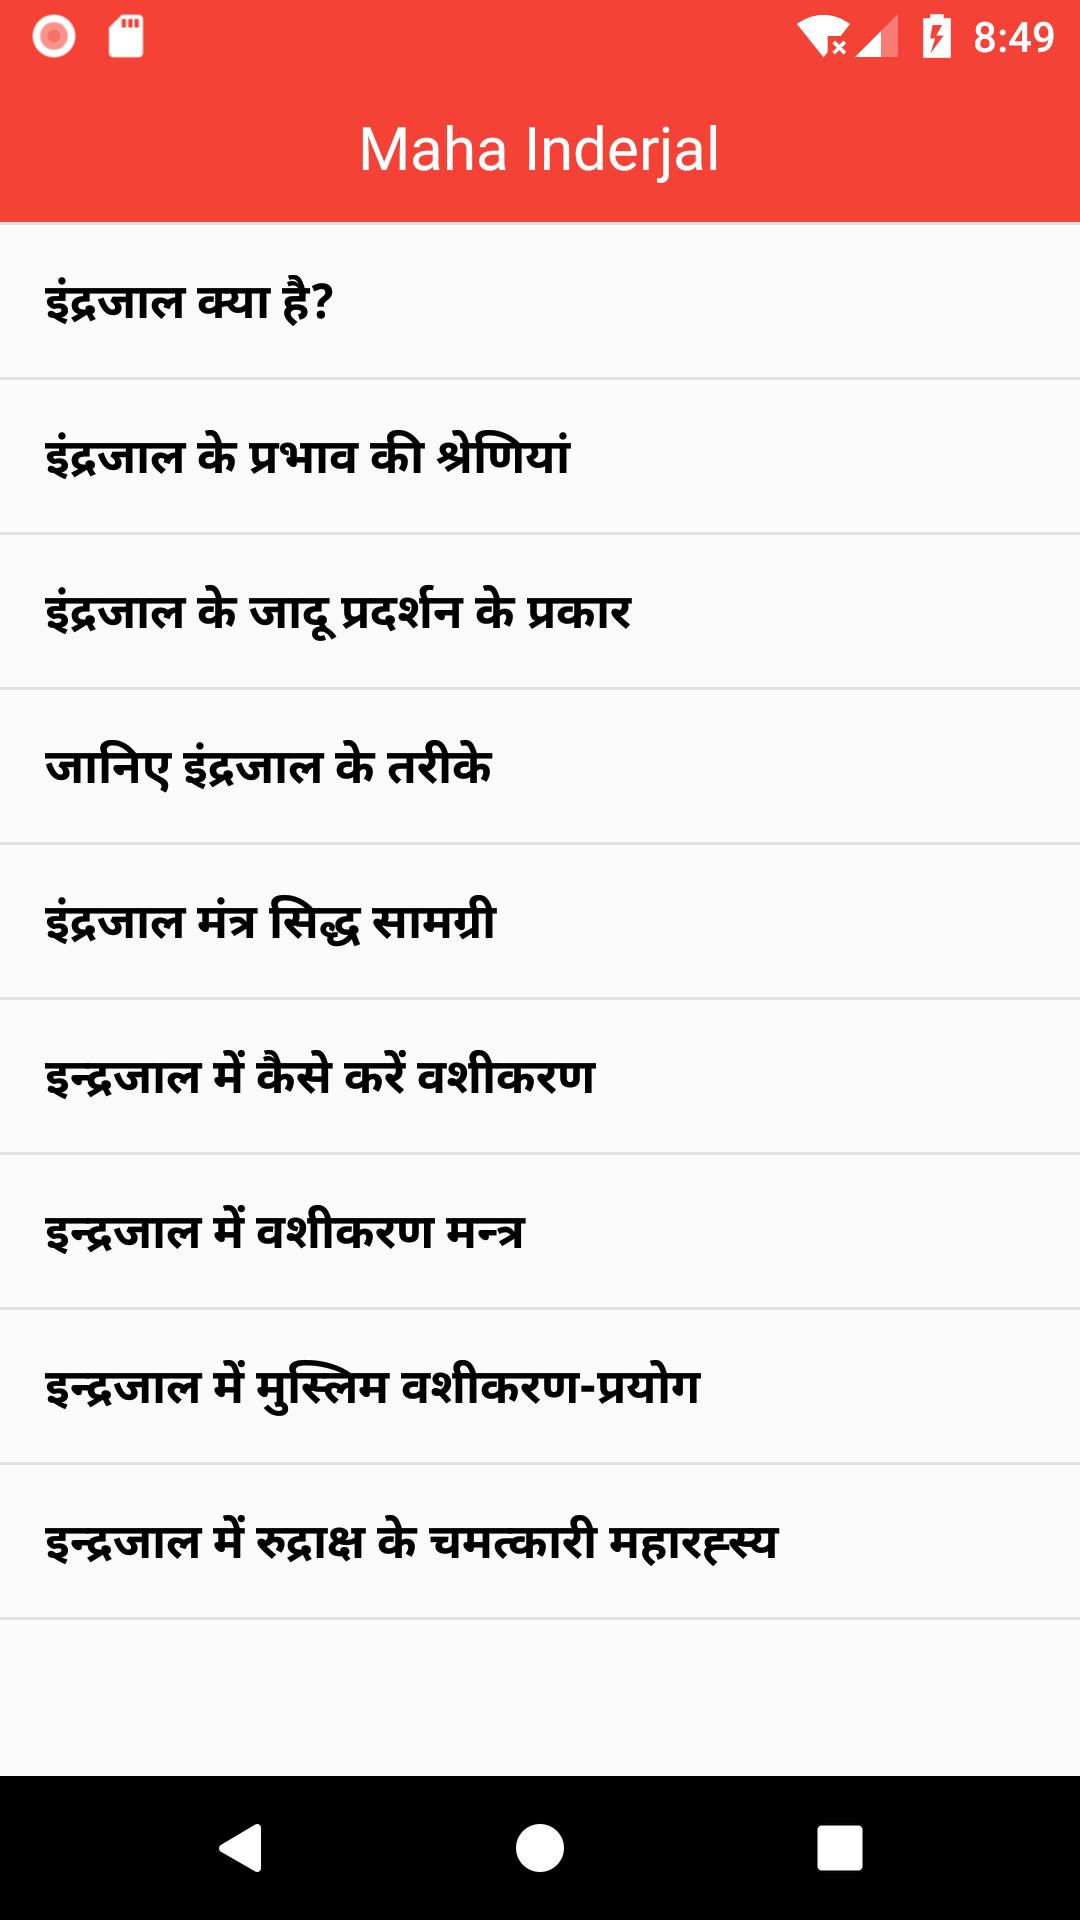 8:49
Maha Inderjal
इंद्रजाल क्या है?
इंद्रजाल के प्रभाव की श्रेणियां
इंद्रजाल के जादू प्रदर्शन के प्रकार
जानिए इंद्रजाल के तरीके
इंद्रजाल मंत्र सिद्ध सामग्री
इन्द्रजाल में कैसे करें वशीकरण
इन्द्रजाल में वशीकरण मन्त्र
इन्द्रजाल में मुस्लिम वशीकरण-प्रयोग
इन्द्रजाल में रुद्राक्ष के चमत्कारी महारह्स्य